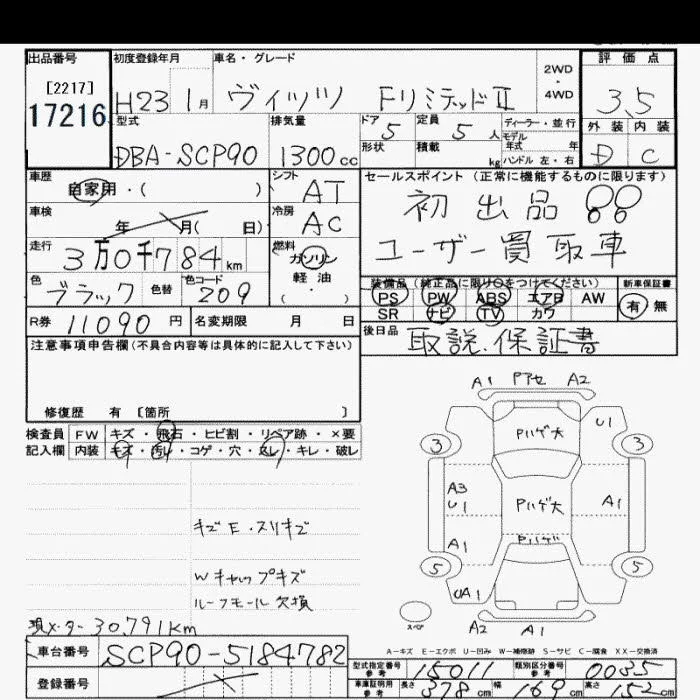 出品番号 初度登録年月 車名・グレード 2WD・4WD 評価点
[2217]
17216 H23 1月 ヴィッツ FリミテッドⅡ 3.5
型式 排気量 ドア 5 定員 5人 ディーラー・並行 外装 内装
モデル年式 年
DBA-SCP90 1300cc 形状 積載 kg ハンドル 左・右 D C
車歴 シフト AT セールスポイント(正常に機能するものに限ります)
自家用・( ) 初出品
車検 年 月( 日) 冷房 AC ユーザー買取車
走行 3万0千784km 燃料 ガソリン
軽油・( )
色 ブラック 色替 色コード 209 装備品(純正品に限り○をつけてください) 新車保証書
PS PW ABS エアB AW 有 無
SR ナビ TV カワ
R券 11090円 名変期限 月 日 後日品 取説.保証書
注意事項申告欄(不具合内容等は具体的に記入して下さい)
修復歴 有 〔箇所 〕
検査員 FW キズ・飛石・ヒビ割・リペア跡・×要
記入欄 内装 キズ・汚レ・コゲ・穴・スレ・キレ・破レ
A1 Pアセ A2
Pハゲ大 U1
3 3
A3
U1 Pハゲ大 A1
キズE・スリキズ
A1 Pハゲ
5 5
Wキャップキズ
UA1
ルーフモール欠損
スペア A2 A1
現メーター30,791km
A-キズ E-エクボ U-凹み W-補修跡 S-サビ C-腐食 XX-交換済
車台番号 SCP90-5184782
型式指定番号 参考 15011 類別区分番号 参考 0035
登録番号 車庫証明用 参考 長さ 378cm 幅 169cm 高さ 152cm